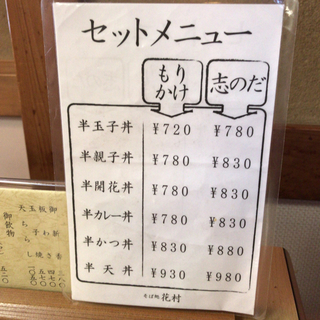 セットメニュー
もり
かけ
志のだ
半玉子丼 ¥720 ¥780
半親子丼 ¥780 ¥830
半開花丼 ¥780 ¥830
半カレー丼 ¥780 ¥830
半かつ丼 ¥830 ¥880
半天丼 ¥930 ¥980
そば処 花村
御飲物